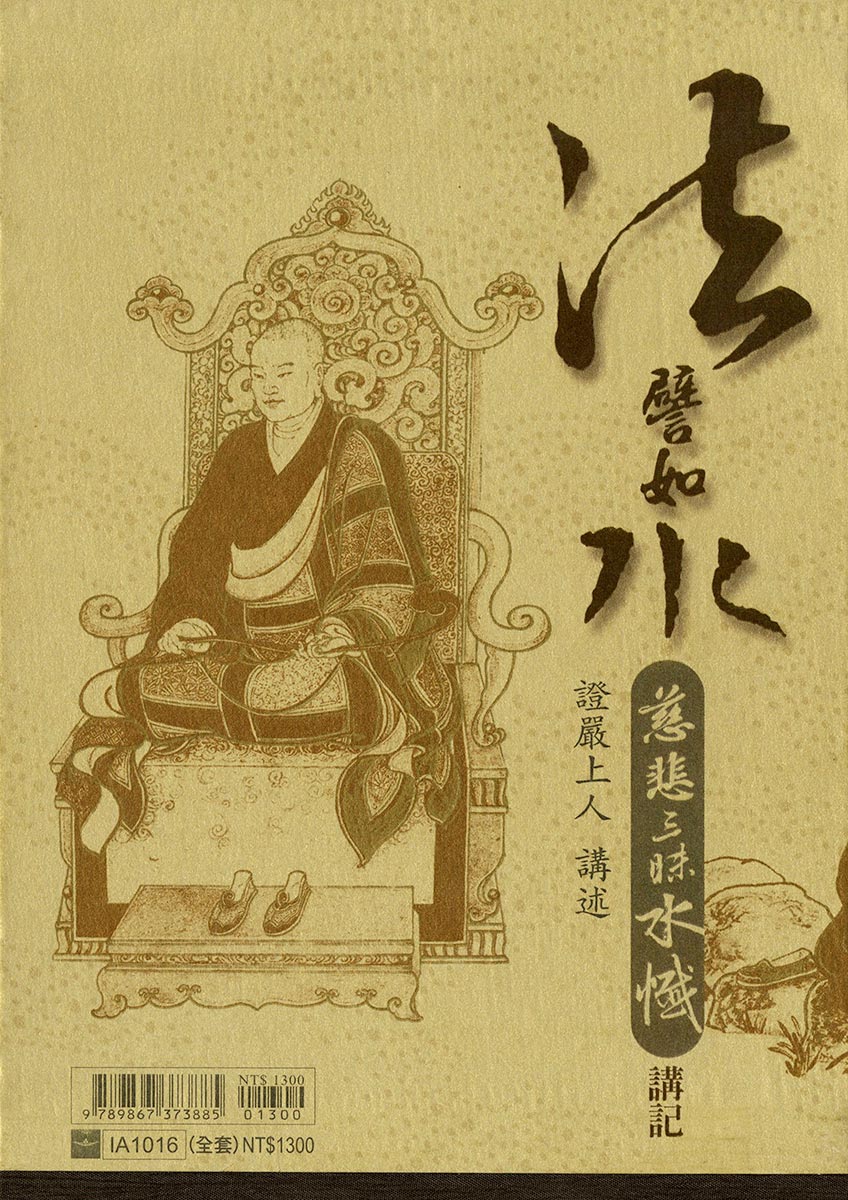 法譬如水
慈悲三昧水懺
講記
證嚴上人 講述
NT$ 1300
9 789867 373885
01300
IA1016 (全套)NT$1300